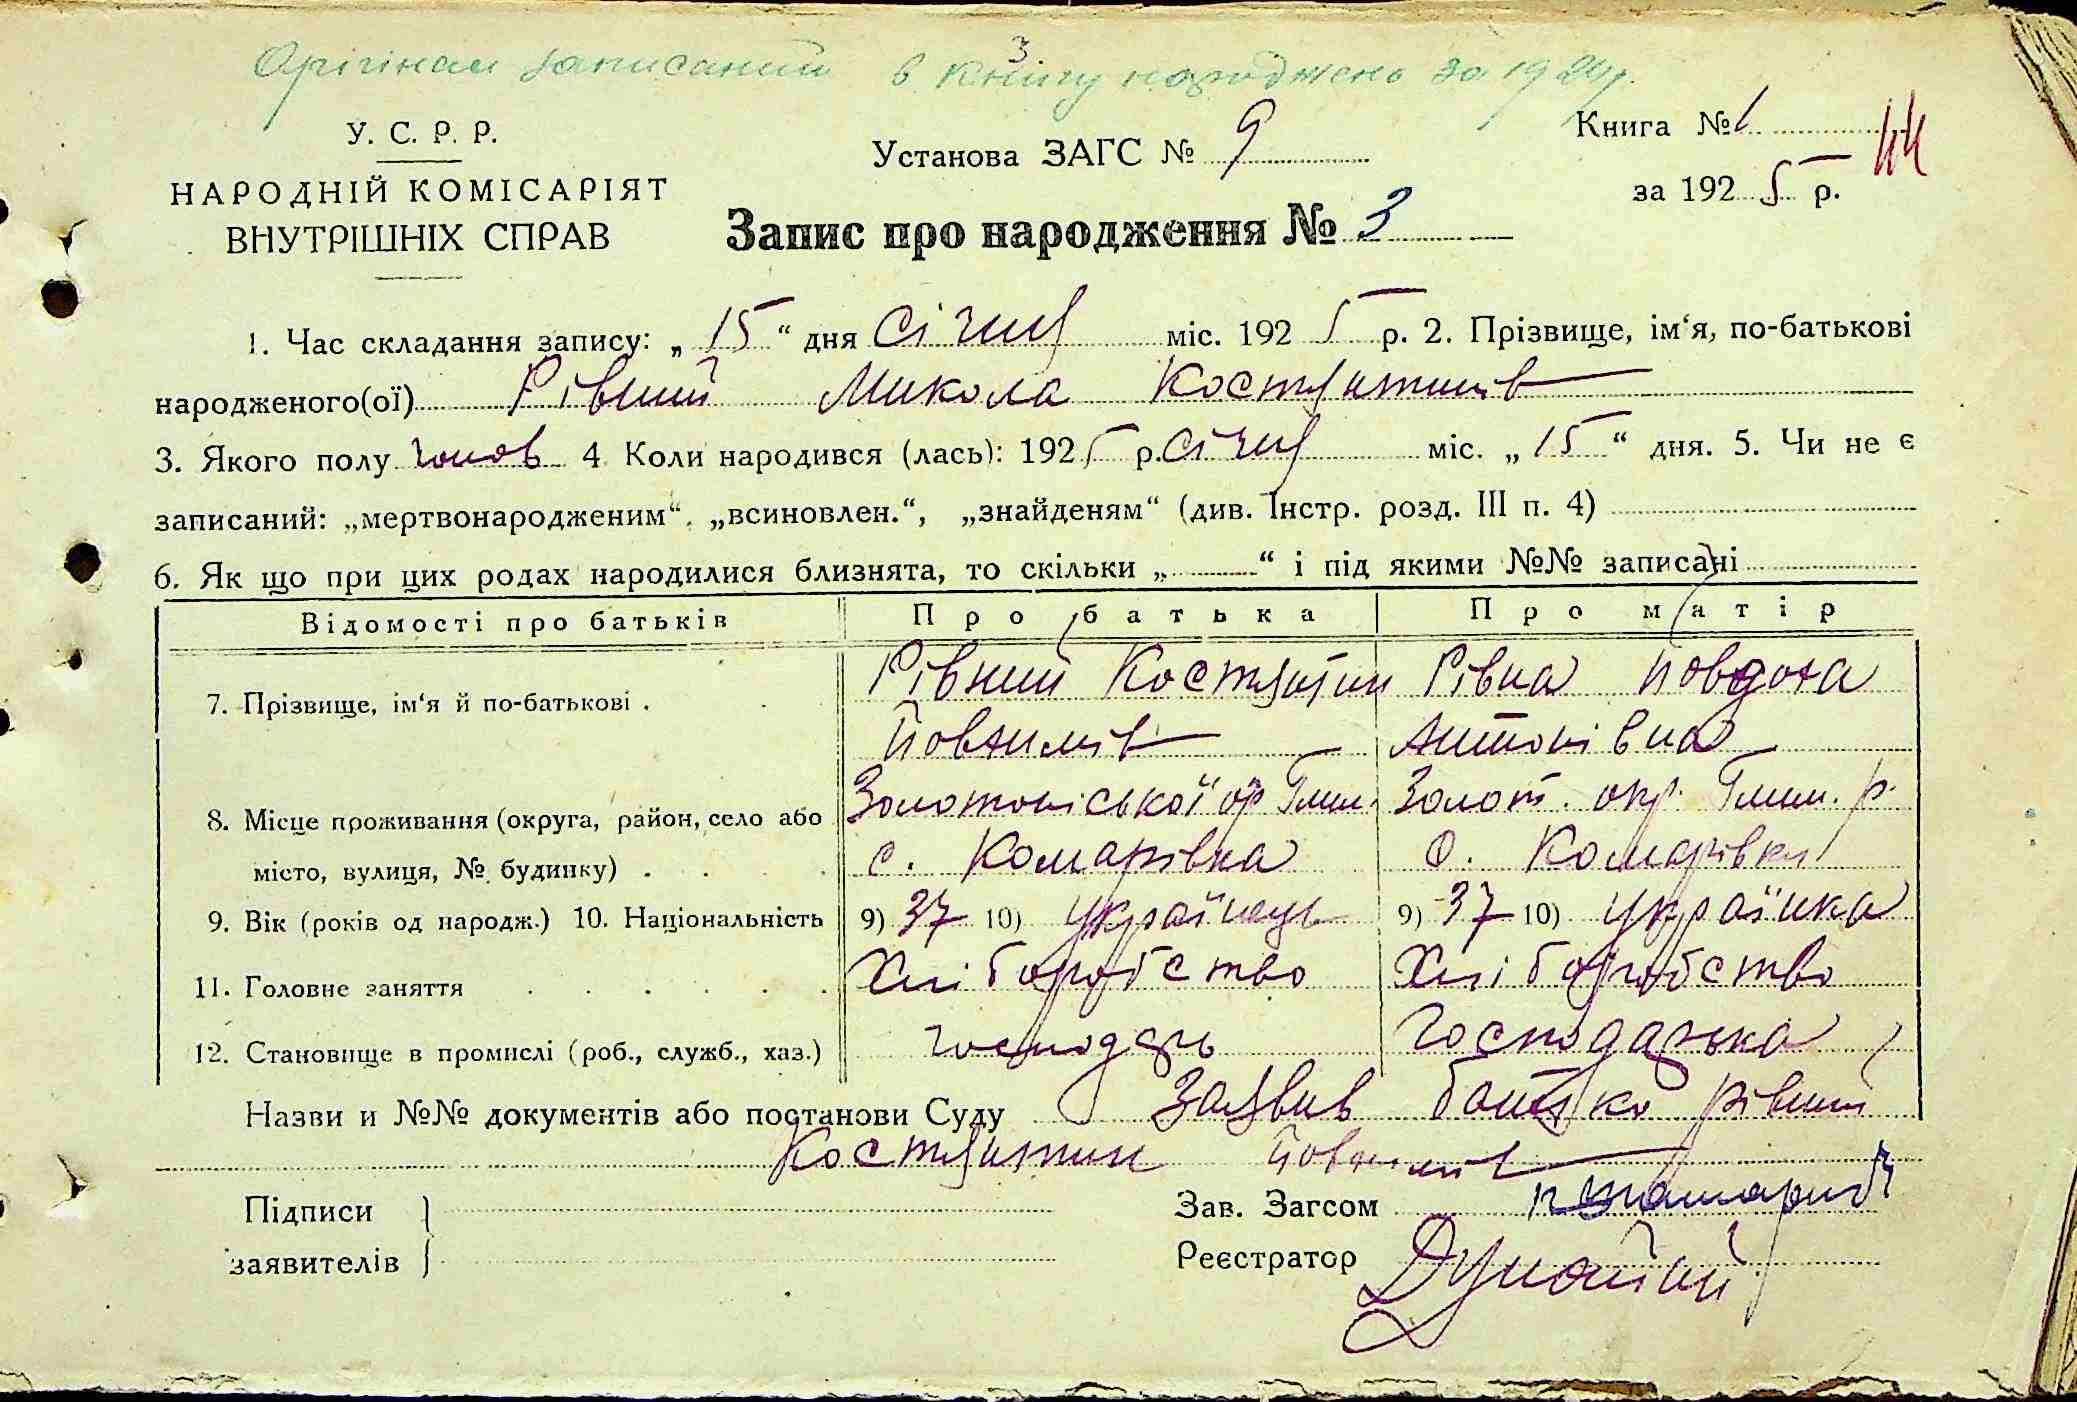 Оригінал записаний в книгу народжень за 1924 р.
3
У. С. Р. Р.
НАРОДНІЙ КОМІСАРІЯТ
ВНУТРІШНІХ СПРАВ
Установа ЗАГС № 9
Книга № 1
44
за 1925 р.
Запис про народження № 3
1. Час складання запису: „15“ дня Січня міс. 1925 р. 2. Прізвище, ім‘я, по-батькові
народженого(ої) Рівний Микола Костянтинів
3. Якого полу чолов 4 Коли народився (лась): 1925 р. Січня міс. „15“ дня. 5. Чи не є
записаний: „мертвонародженим“, „всиновлен.“, „знайденям“ (див. Інстр. розд. III п. 4)
6. Як що при цих родах народилися близнята, то скільки „ “ і під якими №№ записані
Відомості про батьків Про батька Про матір
7. Прізвище, ім‘я й по-батькові . Рівний Костянтин Рівна Йовдоха
Йовхимів Антонівна
8. Місце проживання (округа, район, село або Золотоніської ор Глим. Золот. окр. Глим. р.
місто, вулиця, № будинку) . с. Комарівка с. Комарівка
9. Вік (років од народж.) 10. Національність 9) 37 10) Українець 9) 37 10) Українка
11. Головне заняття Хліборобство Хліборобство
12. Становище в промислі (роб., служб., хаз.) господарь Господарька
Назви и №№ документів або постанови Суду Заявив батько Рівний
Костянтин Йовхимів
Підписи
заявителів
Зав. Загсом
Реєстратор